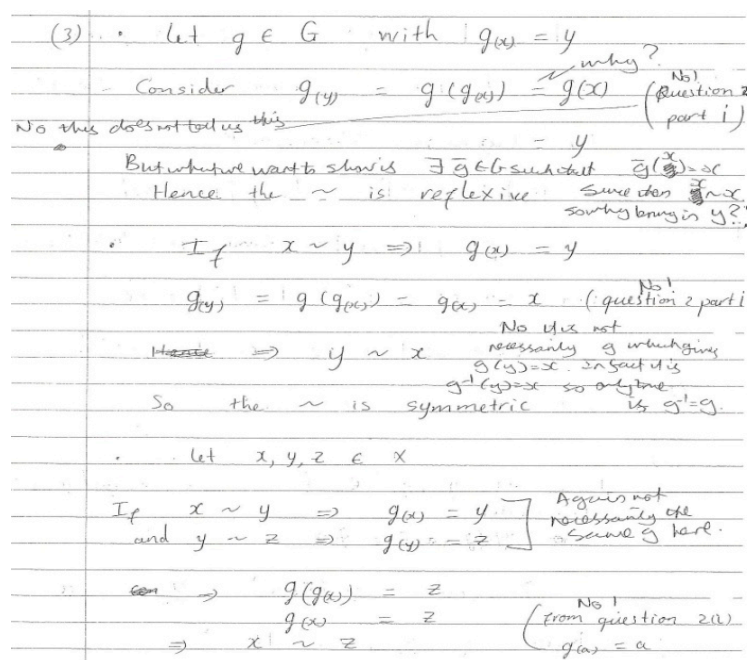 (3) • Let g ∈ G with g(x) = y
why?
Consider g(y) = g(g(x)) = g(x) (Question 2 part i)
No!
No this does not tell us this
= y
But what we want to show is ∃ g̅ ∈ G such that g̅(x) = x
Hence the ~ is reflexive since then x ~ x.
so why bring in y?
• If x ~ y ⇒ g(x) = y
No!
g(y) = g(g(x)) = g(x) = x (question 2 part i
No it is not
Hence ⇒ y ~ x necessarily g which gives
g(y) = x. In fact it is
g⁻¹(y) = x so only true
So the ~ is symmetric is g⁻¹ = g.
• Let x, y, z ∈ X
If x ~ y ⇒ g(x) = y
and y ~ z ⇒ g(y) = z
Again not
necessarily the
same g here.
⇒ g(g(x)) = z
No!
g(x) = z (from question 2(i)
⇒ x ~ z g(a) = a